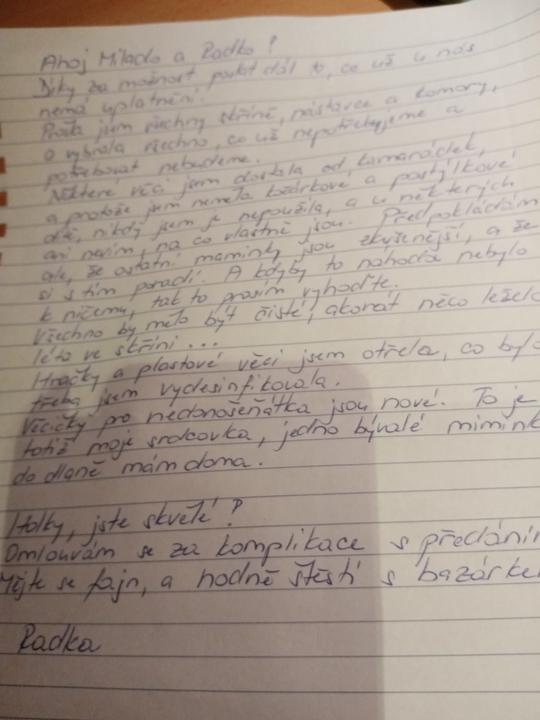 Ahoj Milado a Radko!
Díky za možnost poslat dál to, co už u nás
nemá uplatnění!
Prošla jsem všechny skříně, nástavce a komory,
a vybrala všechno, co už nepotřebujeme a
potřebovat nebudeme.
Některé věci jsem dostala od kamarádek,
a protože jsem neměla kočárkové a postýlkové
dítě, nikdy jsem je nepoužila, a u některých
ani nevím, na co vlastně jsou. Předpokládám
ale, že ostatní maminky jsou zkušenější, a že
si s tím poradí. A kdyby to náhodou nebylo
k ničemu, tak to prosím vyhoďte.
Všechno by mělo být čisté, akorát něco leželo
léto ve skříni...
Hračky a plastové věci jsem otřela, co bylo
třeba jsem vydesinfikovala.
Věcičky pro nedonošeňátka jsou nové. To je
totiž moje srdcovka, jedno bývalé mimink
do dlaně mám doma.
Holky, jste skvělé!
Omlouvám se za komplikace s předání
Mějte se fajn, a hodně štěstí s bazárke
Radka